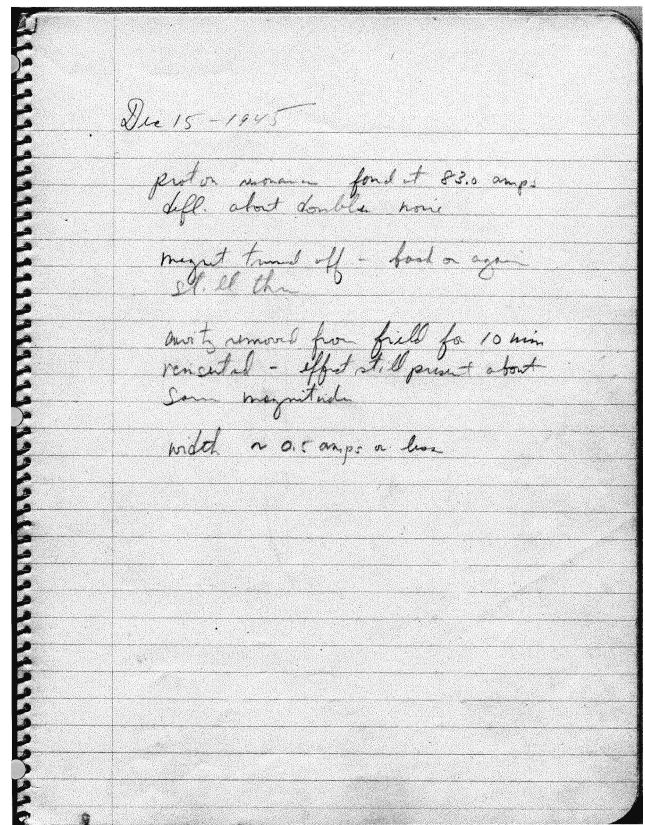 Dec 15 - 1945
proton resonance found at 83.0 amps
defl. about double noise
magnet turned off - back on again
still there
cavity removed from field for 10 min
reinserted - effect still present about
same magnitude
width ~ 0.5 amps or less